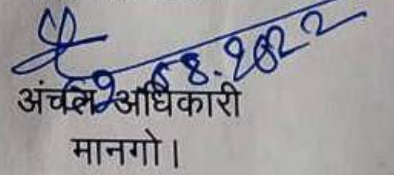 08.2022
अंचल अधिकारी
मानगो।